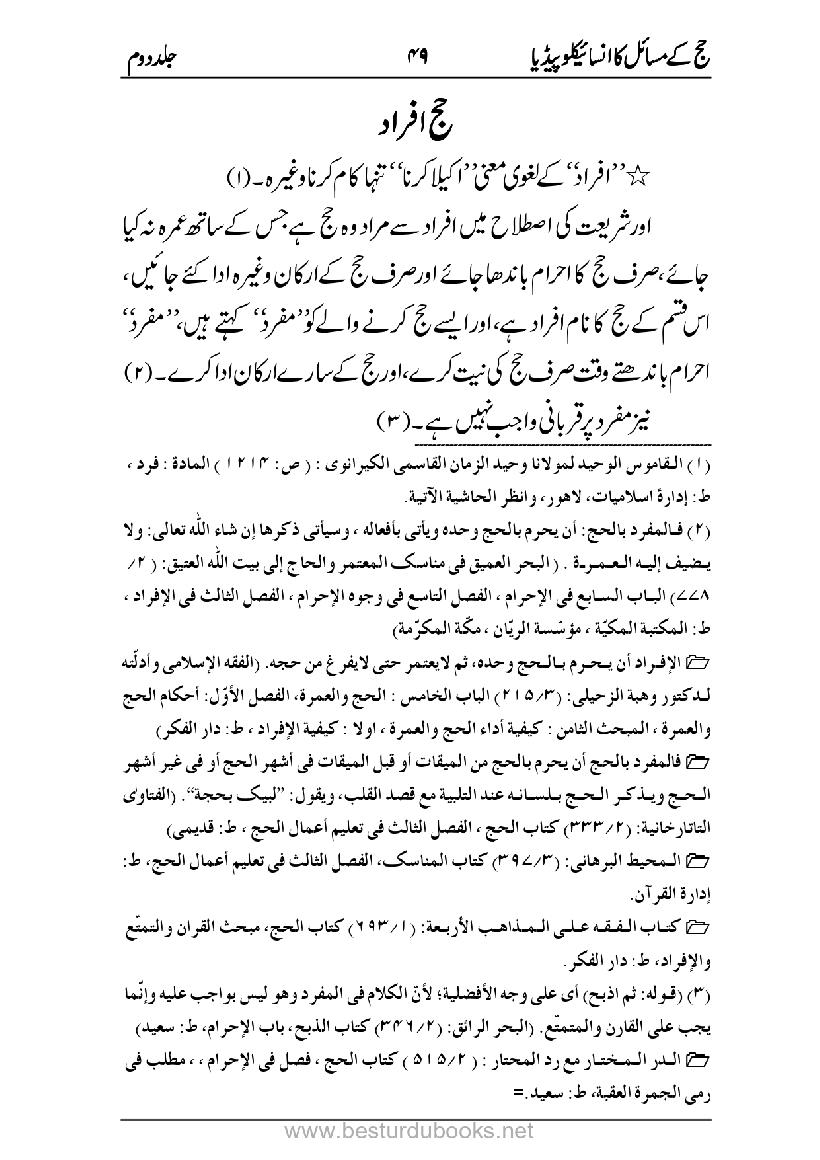 حج کے مسائل کا انسائیکلوپیڈیا ۴۹ جلد دوم
حج افراد
☆ ’’افراد‘‘ کے لغوی معنی ’’اکیلا کرنا‘‘ تنہا کام کرنا وغیرہ۔(۱)
اور شریعت کی اصطلاح میں افراد سے مراد وہ حج ہے جس کے ساتھ عمرہ نہ کیا
جائے، صرف حج کا احرام باندھا جائے اور صرف حج کے ارکان وغیرہ ادا کئے جائیں،
اس قسم کے حج کا نام افراد ہے، اور ایسے حج کرنے والے کو ’’مفرد‘‘ کہتے ہیں، ’’مفرد‘‘
احرام باندھتے وقت صرف حج کی نیت کرے، اور حج کے سارے ارکان ادا کرے۔(۲)
نیز مفرد پر قربانی واجب نہیں ہے۔(۳)
(۱) القاموس الوحید لمولانا وحید الزمان القاسمی الکیرانوی : ( ص: ۱۲۱۴ ) المادة : فرد ،
ط: إدارة اسلامیات، لاهور، وانظر الحاشیة الآتیة.
(۲) فالمفرد بالحج: أن یحرم بالحج وحده ویأتی بأفعاله ، وسیأتی ذکرها إن شاء الله تعالی: ولا
یضیف إلیه العمرة . ( البحر العمیق فی مناسک المعتمر والحاج إلی بیت الله العتیق: ( ۲/
۷۷۸) الباب السابع فی الإحرام ، الفصل التاسع فی وجوه الإحرام ، الفصل الثالث فی الإفراد ،
ط: المکتبة المکیّة ، مؤسّسة الریّان ، مکّة المکرّمة)
الإفراد أن یحرم بالحج وحده، ثم لایعتمر حتی لایفرغ من حجه. (الفقه الإسلامی وأدلّته
لدکتور وهبة الزحیلی: (۲۱۵/۳) الباب الخامس : الحج والعمرة، الفصل الأوّل: أحکام الحج
والعمرة ، المبحث الثامن : کیفیة أداء الحج والعمرة ، اولا : کیفیة الإفراد ، ط: دار الفکر)
فالمفرد بالحج أن یحرم بالحج من المیقات أو قبل المیقات فی أشهر الحج أو فی غیر أشهر
الحج ویذکر الحج بلسانه عند التلبیة مع قصد القلب، ویقول: ”لبیک بحجة“. (الفتاوی
التاتارخانیة: (۳۳۳/۲) کتاب الحج ، الفصل الثالث فی تعلیم أعمال الحج ، ط: قدیمی)
المحیط البرهانی: (۳۹۷/۳) کتاب المناسک، الفصل الثالث فی تعلیم أعمال الحج، ط:
إدارة القرآن.
کتاب الفقه علی المذاهب الأربعة: (۶۹۳/۱) کتاب الحج، مبحث القران والتمتّع
والإفراد، ط: دار الفکر.
(۳) (قوله: ثم اذبح) أی علی وجه الأفضلیة؛ لأنّ الکلام فی المفرد وهو لیس بواجب علیه وإنّما
یجب علی القارن والمتمتّع. (البحر الرائق: (۳۴۶/۲) کتاب الذبح، باب الإحرام، ط: سعید)
الدر المختار مع رد المحتار : ( ۵۱۵/۲ ) کتاب الحج ، فصل فی الإحرام ، ، مطلب فی
رمی الجمرة العقبة، ط: سعید.=
www.besturdubooks.net